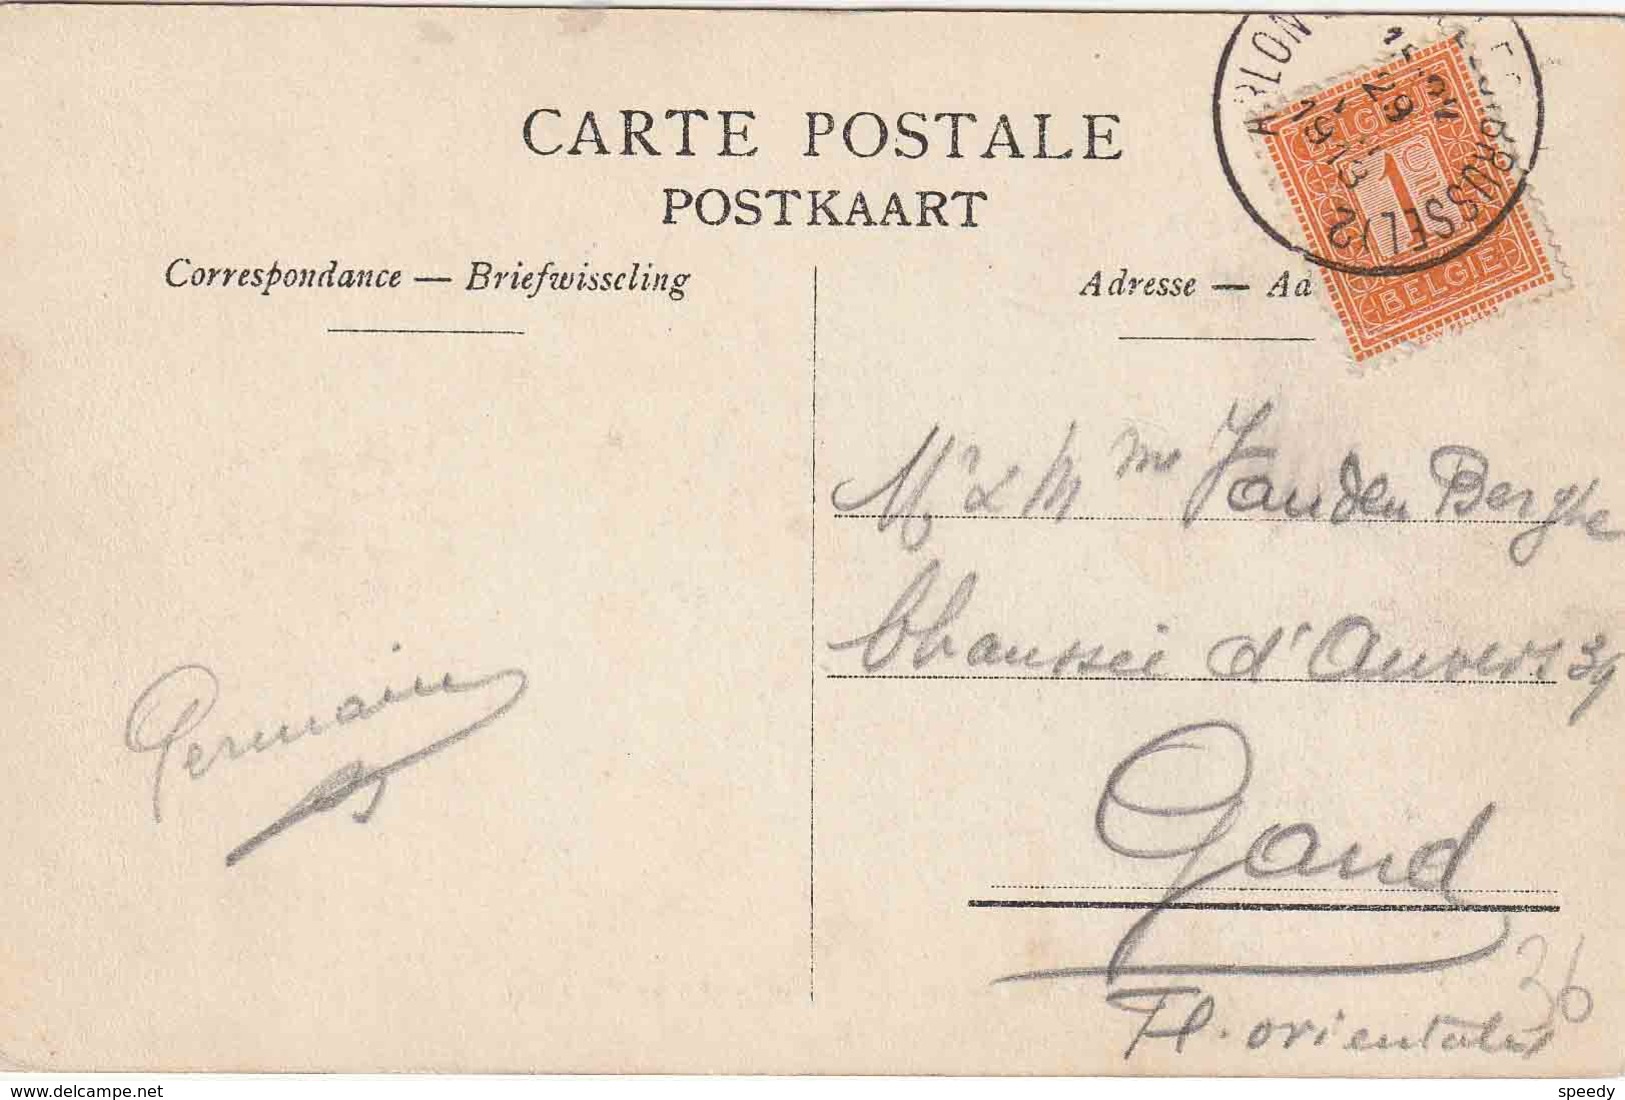 CARTE POSTALE
POSTKAART
Correspondance — Briefwisseling
Adresse — Ad
ARLON BRUSSEL 12
29
1913
BELGIQUE
1c
BELGIË
Mr & Mme Vanden Berghe
Chaussée d'Anvers 39
Gand
Fl. orientales
Germain
36
delcampe.net
speedy